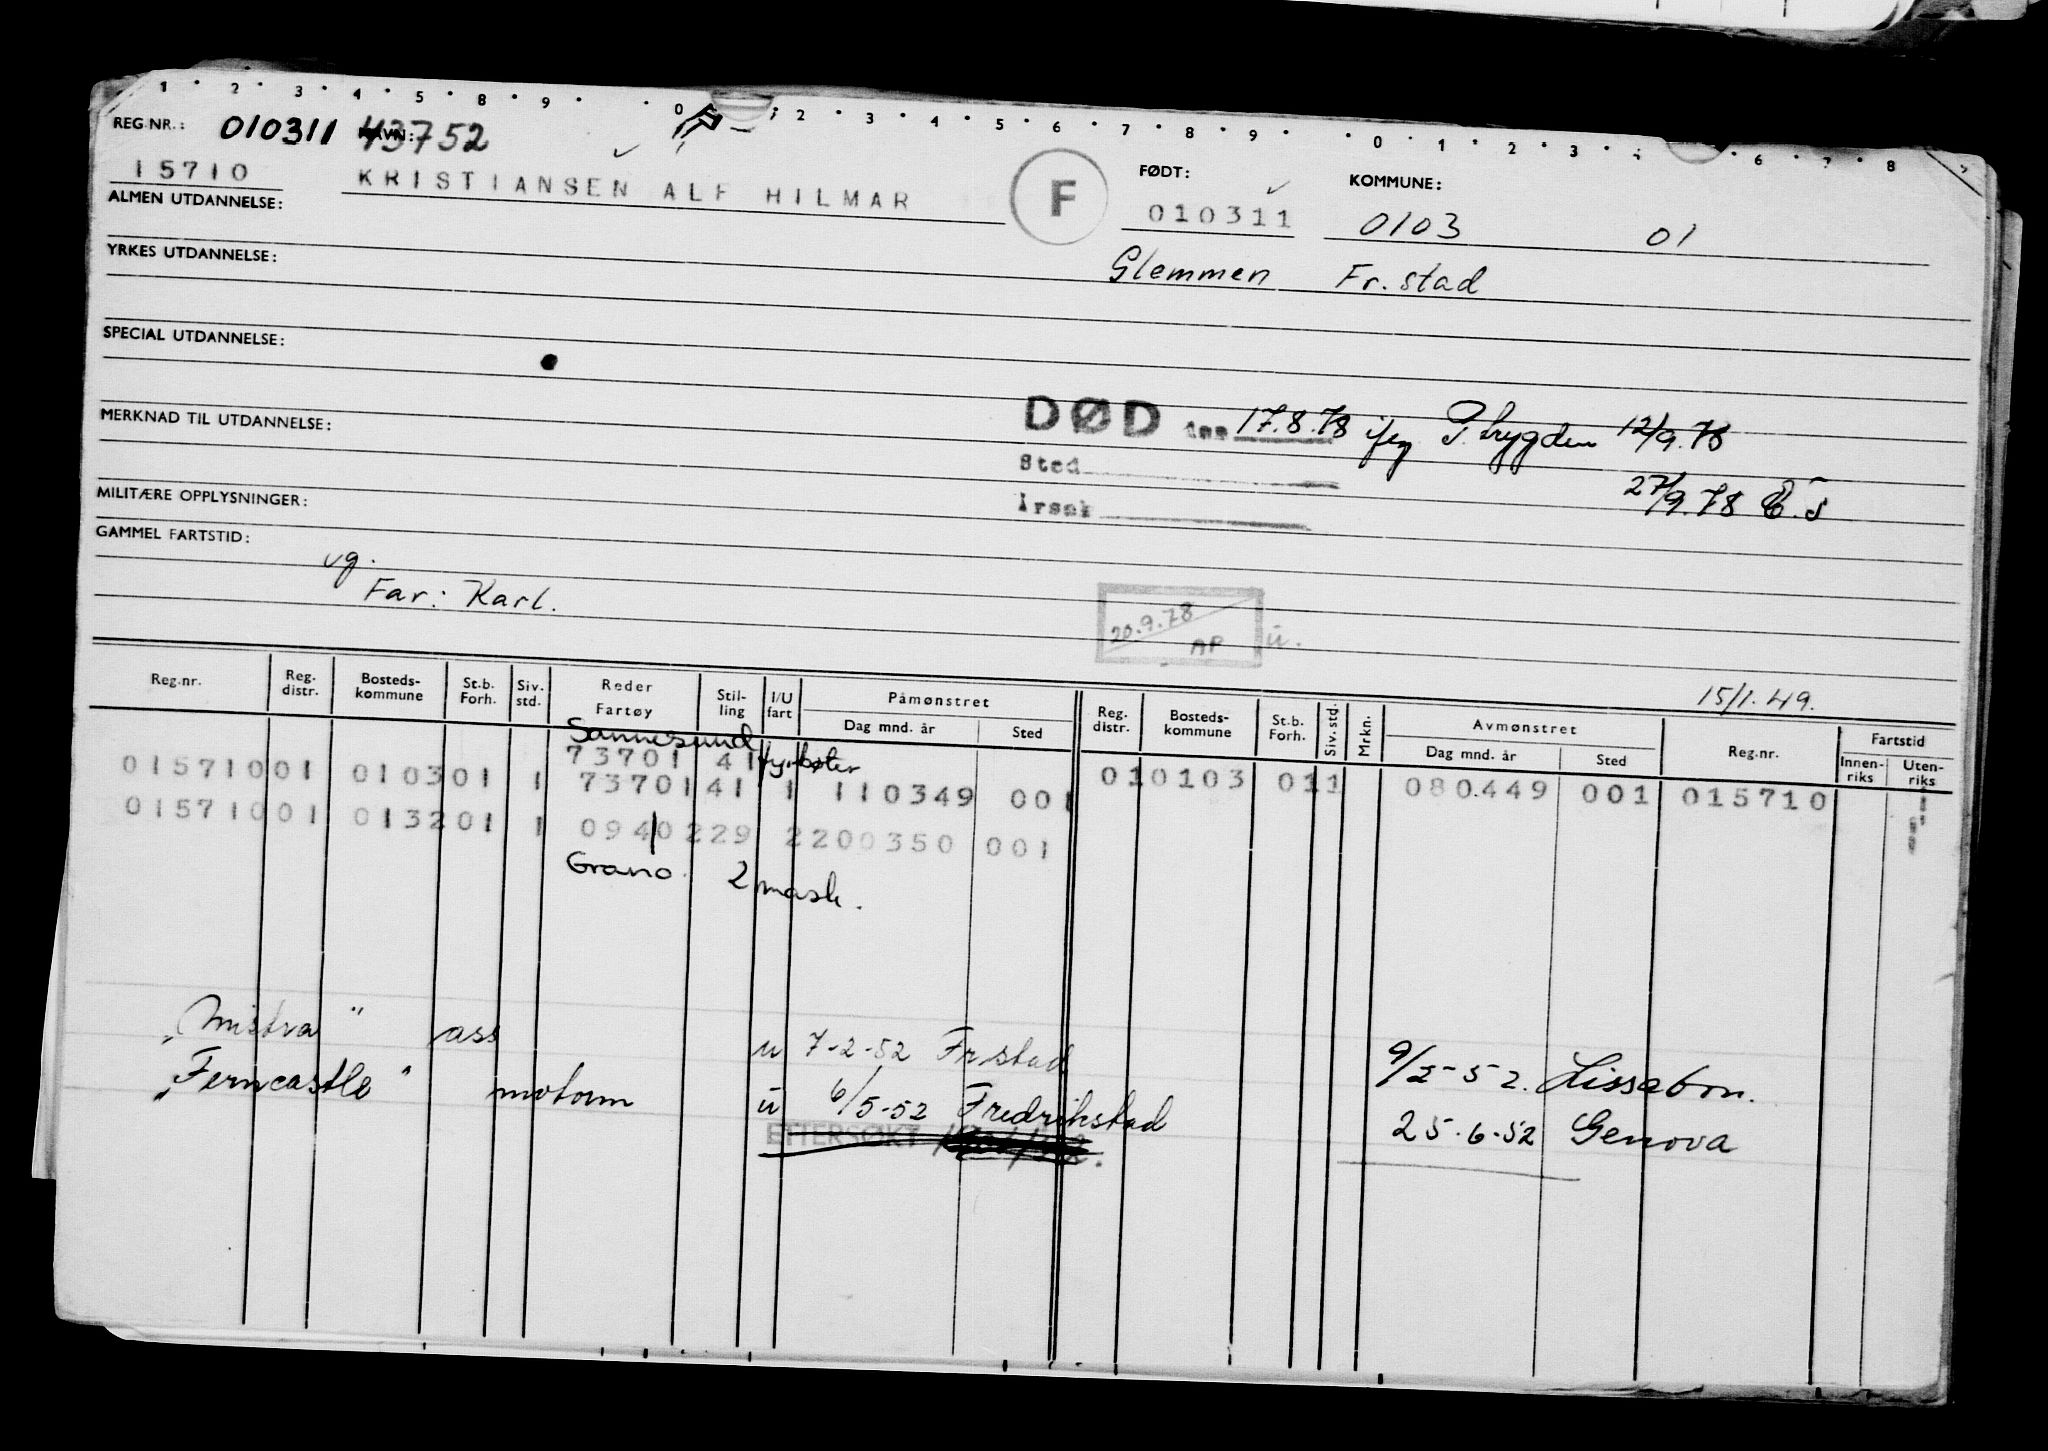 1 2 3 4 5 8 9 0 2 3 4 5 6 7 8 9 0 1 2 3 6 7 8
REG.NR.: 010311 43752
15710 KRISTIANSEN ALF HILMAR F FØDT: 010311 KOMMUNE: 0103 01
ALMEN UTDANNELSE:
Glemmen Fr.stad
YRKES UTDANNELSE:
SPECIAL UTDANNELSE:
MERKNAD TIL UTDANNELSE:
DØD den 17.8.78 iføg P.trygden 12/9.78
Sted
27/9.78 E.S
Årsak
MILITÆRE OPPLYSNINGER:
GAMMEL FARTSTID:
vg.
Far: Karl.
20.9.78 AP ū.
15/1.49.
Reg.nr. Reg. distr. Bosteds-kommune St.b. Forh. Siv. std. Reder Fartøy Stil-ling I/U fart Påmønstret Dag mnd. år Sted Reg. distr. Bosteds-kommune St.b. Forh. Siv. std. Mrkn. Avmønstret Dag mnd. år Sted Reg.nr. Fartstid Innen-riks Uten-riks
Sannesund fyrbøter
73701 41
01571001 010301 1 7370141 1 110349 001 010103 011 080449 001 015710
01571001 013201 1 0940229 2200350 001
Grano. 2 mask.
"Mistra" ass u 7-2-52 Frstad 9/2-52. Lissabon.
"Ferncastle" motorm ū 6/5-52 Fredrikstad 25-6-52 Genova
ETTERSØKT